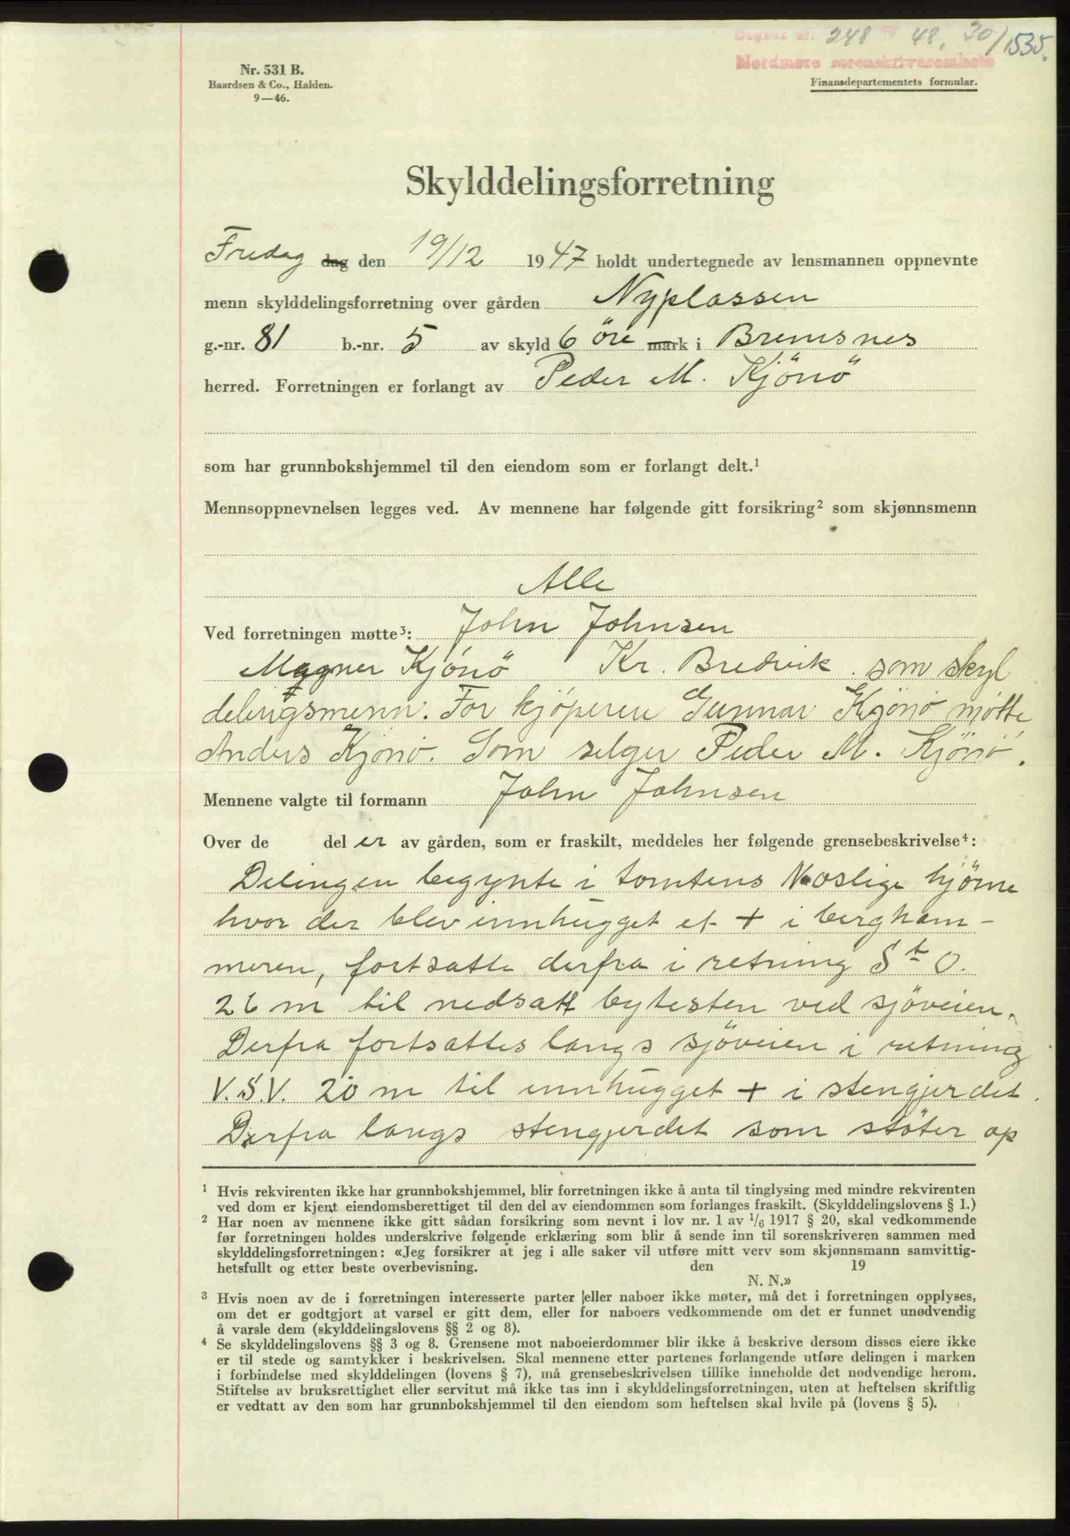 Dagbok nr. 248 48, 30/1535.
Nordmøre sorenskriverembete
Nr. 531 B.
Baardsen & Co., Halden.
9—46.
Finansdepartementets formular.
Skylddelingsforretning
Fredag dag den 19/12 1947 holdt undertegnede av lensmannen oppnevnte
menn skylddelingsforretning over gården Nyplassen
g.-nr. 81 b.-nr. 5 av skyld 6 öre mark i Bremsnes
herred. Forretningen er forlangt av Peder M. Kjönö
som har grunnbokshjemmel til den eiendom som er forlangt delt.¹
Mennsoppnevnelsen legges ved. Av mennene har følgende gitt forsikring² som skjønnsmenn
Alle
Ved forretningen møtte³: John Johnsen
Magner Kjönö Kr. Bredvik som skyl
delingsmenn. For kjöperen Gunnar Kjönö møtte
Anders Kjönö. Som selger Peder M. Kjönö.
Mennene valgte til formann John Johnsen
Over de del er av gården, som er fraskilt, meddeles her følgende grensebeskrivelse⁴:
Delingen begynte i tomtens N.oslige hjörne
hvor der blev innhugget et + i bergham-
meren, fortsatte derfra i retning S t O.
26 m til nedsatt bytesten ved sjöveien.
Derfra fortsattes langs sjöveien i retning
V.S.V. 20 m til innhugget + i stengjerdet.
Derfra langs stengjerdet som stöter op
¹ Hvis rekvirenten ikke har grunnbokshjemmel, blir forretningen ikke å anta til tinglysing med mindre rekvirenten
ved dom er kjent eiendomsberettiget til den del av eiendommen som forlanges fraskilt. (Skylddelingslovens § 1.)
² Har noen av mennene ikke gitt sådan forsikring som nevnt i lov nr. 1 av 1/6 1917 § 20, skal vedkommende
før forretningen holdes underskrive følgende erklæring som blir å sende inn til sorenskriveren sammen med
skylddelingsforretningen: «Jeg forsikrer at jeg i alle saker vil utføre mitt verv som skjønnsmann samvittig-
hetsfullt og etter beste overbevisning. den 19
N. N.»
³ Hvis noen av de i forretningen interesserte parter eller naboer ikke møter, må det i forretningen opplyses,
om det er godtgjort at varsel er gitt dem, eller for naboers vedkommende om det er funnet unødvendig
å varsle dem (skylddelingslovens §§ 2 og 8).
⁴ Se skylddelingslovens §§ 3 og 8. Grensene mot naboeierdommer blir ikke å beskrive dersom disses eiere ikke
er til stede og samtykker i beskrivelsen. Skal mennene etter partenes forlangende utføre delingen i marken
i forbindelse med skylddelingen (lovens § 7), må grensebeskrivelsen tillike inneholde det nødvendige herom.
Stiftelse av bruksrettighet eller servitut må ikke tas inn i skylddelingsforretningen, uten at heftelsen skriftlig
er vedtatt av den som har grunnbokshjemmel til den eiendom som heftelsen skal hvile på (lovens § 5).